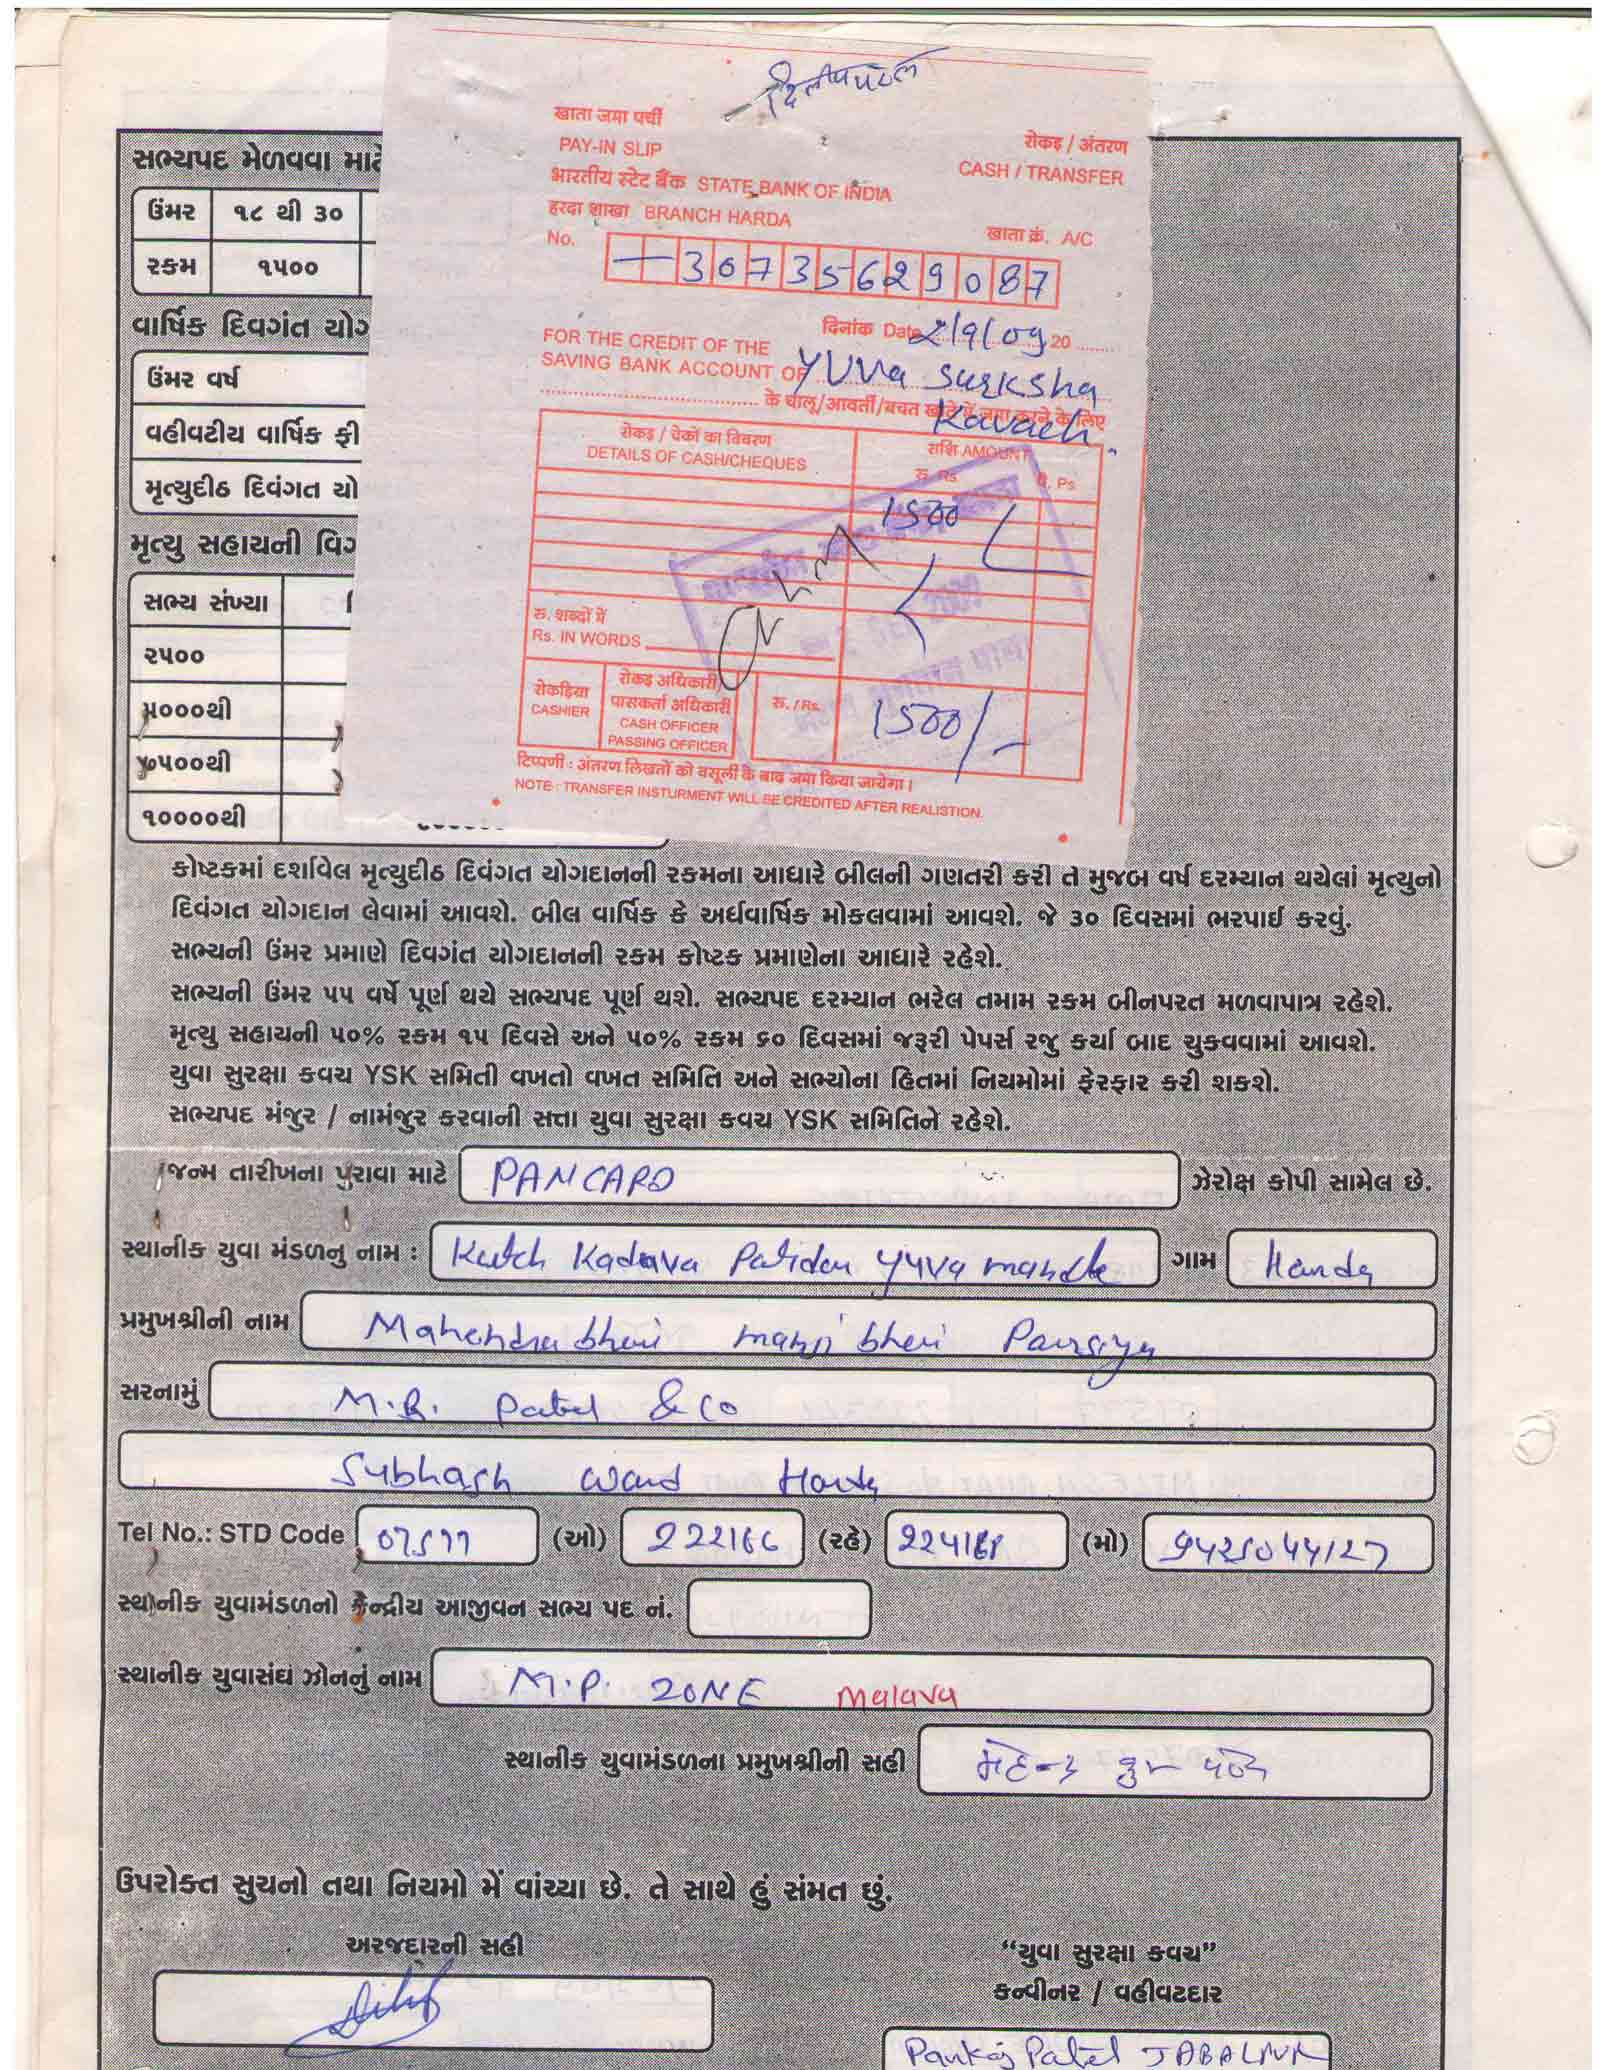 दिलीप पटेल
खाता जमा पर्ची
PAY-IN SLIP
रोकड़ / अंतरण
CASH / TRANSFER
भारतीय स्टेट बैंक STATE BANK OF INDIA
हरदा शाखा BRANCH HARDA
खाता क्रं. A/C
No. 30735629087
दिनांक Date 2/9/09 20
FOR THE CREDIT OF THE
SAVING BANK ACCOUNT OF YUVa Surksha
Kavach
के चालू/आवर्ती/बचत खाते में जमा करने के लिए
रोकड़ / चेकों का विवरण राशि AMOUNT
DETAILS OF CASH/CHEQUES रु. Rs. Ps
1500
रु. शब्दों में
Rs. IN WORDS
रोकड़िया
CASHIER
रोकड़ अधिकारी/
पासकर्ता अधिकारी
CASH OFFICER
PASSING OFFICER
रु. / Rs. 1500/-
टिप्पणी : अंतरण लिखतों को वसूली के बाद जमा किया जायेगा।
NOTE : TRANSFER INSTURMENT WILL BE CREDITED AFTER REALISTION.
સભ્યપદ મેળવવા માટે
ઉંમર ૧૮ થી ૩૦
રકમ ૧૫૦૦
વાર્ષિક દિવગંત
ઉંમર વર્ષ
વહીવટીય વાર્ષિક ફી
મૃત્યુદીઠ દિવંગત
મૃત્યુ સહાયની
સભ્ય સંખ્યા
૨૫૦૦
૫૦૦૦થી
૭૫૦૦થી
૧૦૦૦૦થી
કોષ્ટકમાં દર્શાવેલ મૃત્યુદીઠ દિવંગત યોગદાનની રકમના આધારે બીલની ગણતરી કરી તે મુજબ વર્ષ દરમ્યાન થયેલાં મૃત્યુનો
દિવંગત યોગદાન લેવામાં આવશે. બીલ વાર્ષિક કે અર્ધવાર્ષિક મોકલવામાં આવશે. જે ૩૦ દિવસમાં ભરપાઈ કરવું.
સભ્યની ઉંમર પ્રમાણે દિવગંત યોગદાનની રકમ કોષ્ટક પ્રમાણેના આધારે રહેશે.
સભ્યની ઉંમર ૫૫ વર્ષે પૂર્ણ થયે સભ્યપદ પૂર્ણ થશે. સભ્યપદ દરમ્યાન ભરેલ તમામ રકમ બીનપરત મળવાપાત્ર રહેશે.
મૃત્યુ સહાયની ૫૦% રકમ ૧૫ દિવસે અને ૫૦% રકમ ૬૦ દિવસમાં જરૂરી પેપર્સ રજુ કર્યા બાદ ચુકવવામાં આવશે.
યુવા સુરક્ષા કવચ YSK સમિતી વખતો વખત સમિતિ અને સભ્યોના હિતમાં નિયમોમાં ફેરફાર કરી શકશે.
સભ્યપદ મંજુર / નામંજુર કરવાની સત્તા યુવા સુરક્ષા કવચ YSK સમિતિને રહેશે.
જન્મ તારીખના પુરાવા માટે PANCARD ઝેરોક્ષ કોપી સામેલ છે.
સ્થાનીક યુવા મંડળનુ નામ : Kutch Kadava Patidar yuva mandle ગામ Harda
પ્રમુખશ્રીની નામ Mahendrabhai manjibhai Parsiya
સરનામું M.R. Patel & Co
Subhash Ward Harda
Tel No.: STD Code 07577 (ઓ) 222166 (રહે) 224168 (મો) 9425044127
સ્થાનીક યુવામંડળનો કેન્દ્રીય આજીવન સભ્ય પદ નં.
સ્થાનીક યુવાસંઘ ઝોનનું નામ M.P. ZONE Malava
સ્થાનીક યુવામંડળના પ્રમુખશ્રીની સહી
ઉપરોક્ત સુચનો તથા નિયમો મેં વાંચ્યા છે. તે સાથે હું સંમત છું.
અરજદારની સહી
Dilip
“યુવા સુરક્ષા કવચ”
કન્વીનર / વહીવટદાર
Pankaj Patel JABALPUR